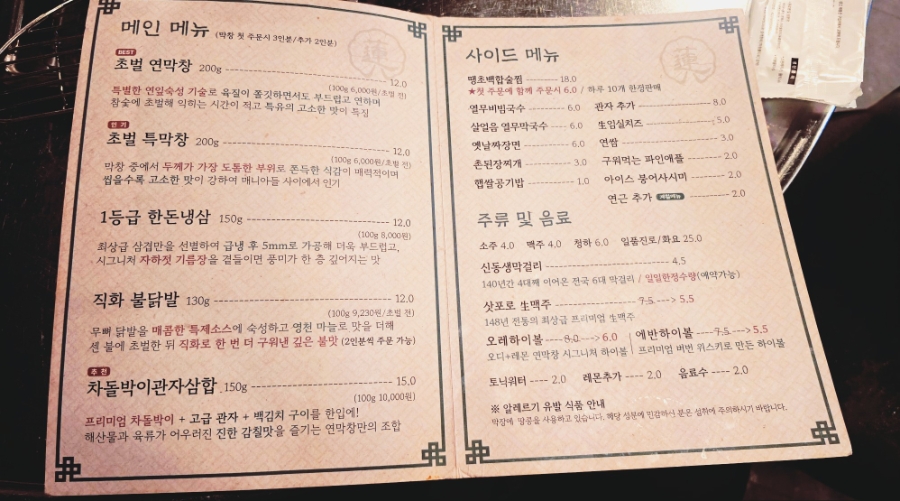 메인 메뉴 (막창 첫 주문시 3인분/추가 2인분)
BEST
초벌 연막창 200g 12.0
(100g 6,000원/초벌 전)
특별한 연잎숙성 기술로 육질이 쫄깃하면서도 부드럽고 연하며
참숯에 초벌해 익히는 시간이 적고 특유의 고소한 맛이 특징
인기
초벌 특막창 200g 12.0
(100g 6,000원/초벌 전)
막창 중에서 두께가 가장 도톰한 부위로 쫀득한 식감이 매력적이며
씹을수록 고소한 맛이 강하여 매니아들 사이에서 인기
1등급 한돈냉삼 150g 12.0
(100g 8,000원)
최상급 삼겹만을 선별하여 급냉 후 5mm로 가공해 더욱 부드럽고,
시그니처 자하젓 기름장을 곁들이면 풍미가 한 층 깊어지는 맛
직화 불닭발 130g 12.0
(100g 9,230원/초벌 전)
무뼈 닭발을 매콤한 특제소스에 숙성하고 영천 마늘로 맛을 더해
센 불에 초벌한 뒤 직화로 한 번 더 구워낸 깊은 불맛 (2인분씩 주문 가능)
추천
차돌박이관자삼합 150g 15.0
(100g 10,000원)
프리미엄 차돌박이 + 고급 관자 + 백김치 구이를 한입에!
해산물과 육류가 어우러진 진한 감칠맛을 즐기는 연막창만의 조합
사이드 메뉴
땡초백합술찜 18.0
★첫 주문에 함께 주문시 6.0 / 하루 10개 한정판매
열무비빔국수 6.0 관자 추가 8.0
살얼음 열무막국수 6.0 생임실치즈 5.0
옛날짜장면 6.0 연쌈 3.0
촌된장찌개 3.0 구워먹는 파인애플 2.0
햅쌀공기밥 1.0 아이스 붕어사시미 2.0
연근 추가 2.0
주류 및 음료
소주 4.0 맥주 4.0 청하 6.0 일품진로/화요 25.0
신동생막걸리 4.5
140년간 4대째 이어온 전국 6대 막걸리 / 일일한정수량(예약가능)
삿포로 生맥주 7.5 --> 5.5
148년 전통의 최상급 프리미엄 生맥주
오레하이볼 8.0 --> 6.0 에반하이볼 7.5 --> 5.5
오디+레몬 연막창 시그니처 하이볼 프리미엄 버번 위스키로 만든 하이볼
토닉워터 2.0 레몬추가 2.0 음료수 2.0
※ 알레르기 유발 식품 안내
막장에 땅콩을 사용하고 있습니다. 해당 성분에 민감하신 분은 섭취에 주의하시기 바랍니다.